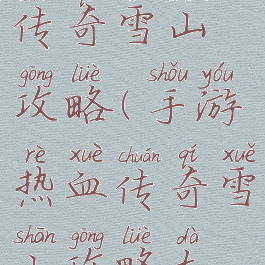 传奇雪山
gōng lüè shǒu yóu
攻略(手游
rè xuè chuán qí xuě
热血传奇雪
shān gōng lüè dà
山攻略大